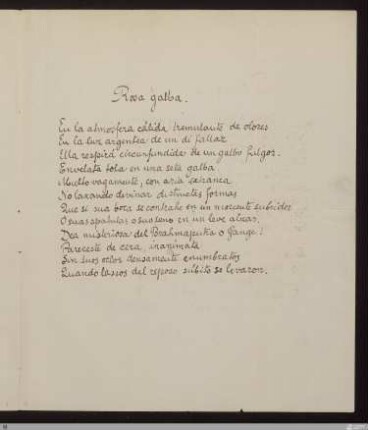 Rosa galba.
En la atmosfera cálida tremulante de olores
En la luz argentea de un di fallaz
Ella respira circunfundida de un galbo fulgor.
Envelata tota en una seta galba.
Mucho vagamente, con aria extranea
No laxando divinar distinctas formas
Que si sua boca se contrahe en un morsente subriso
O suas spatulas o suo seno en un leve alzar.
Dea misteriosa del Brahmaputra o Gange!
Pareceste de cera, inanimata
Sin tuos oclos densamente enumbratos
Quando lassos del reposo súbito se levaron.